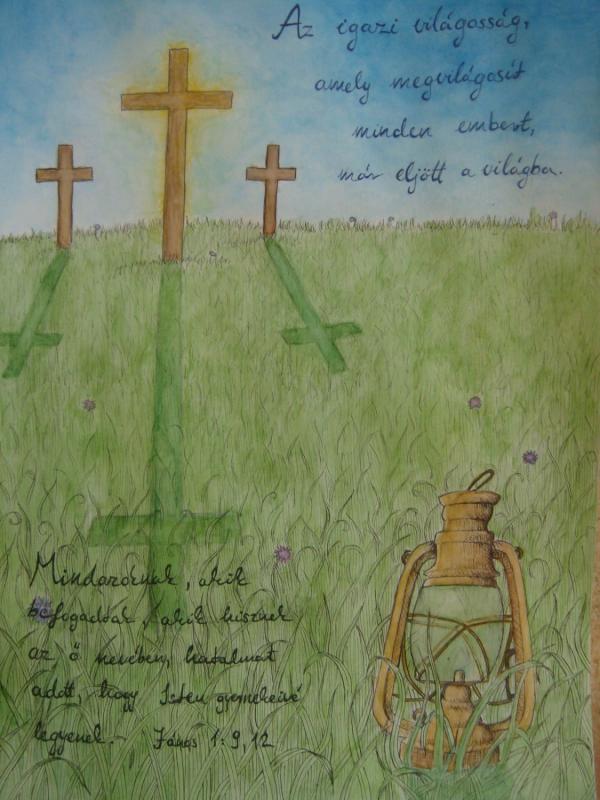 Az igazi világosság,
amely megvilágosít
minden embert,
már eljött a világba.
Mindazoknak, akik
befogadták, akik hisznek
az ő nevében, hatalmat
adott, hogy Isten gyermekeivé
legyenek. János 1:9,12